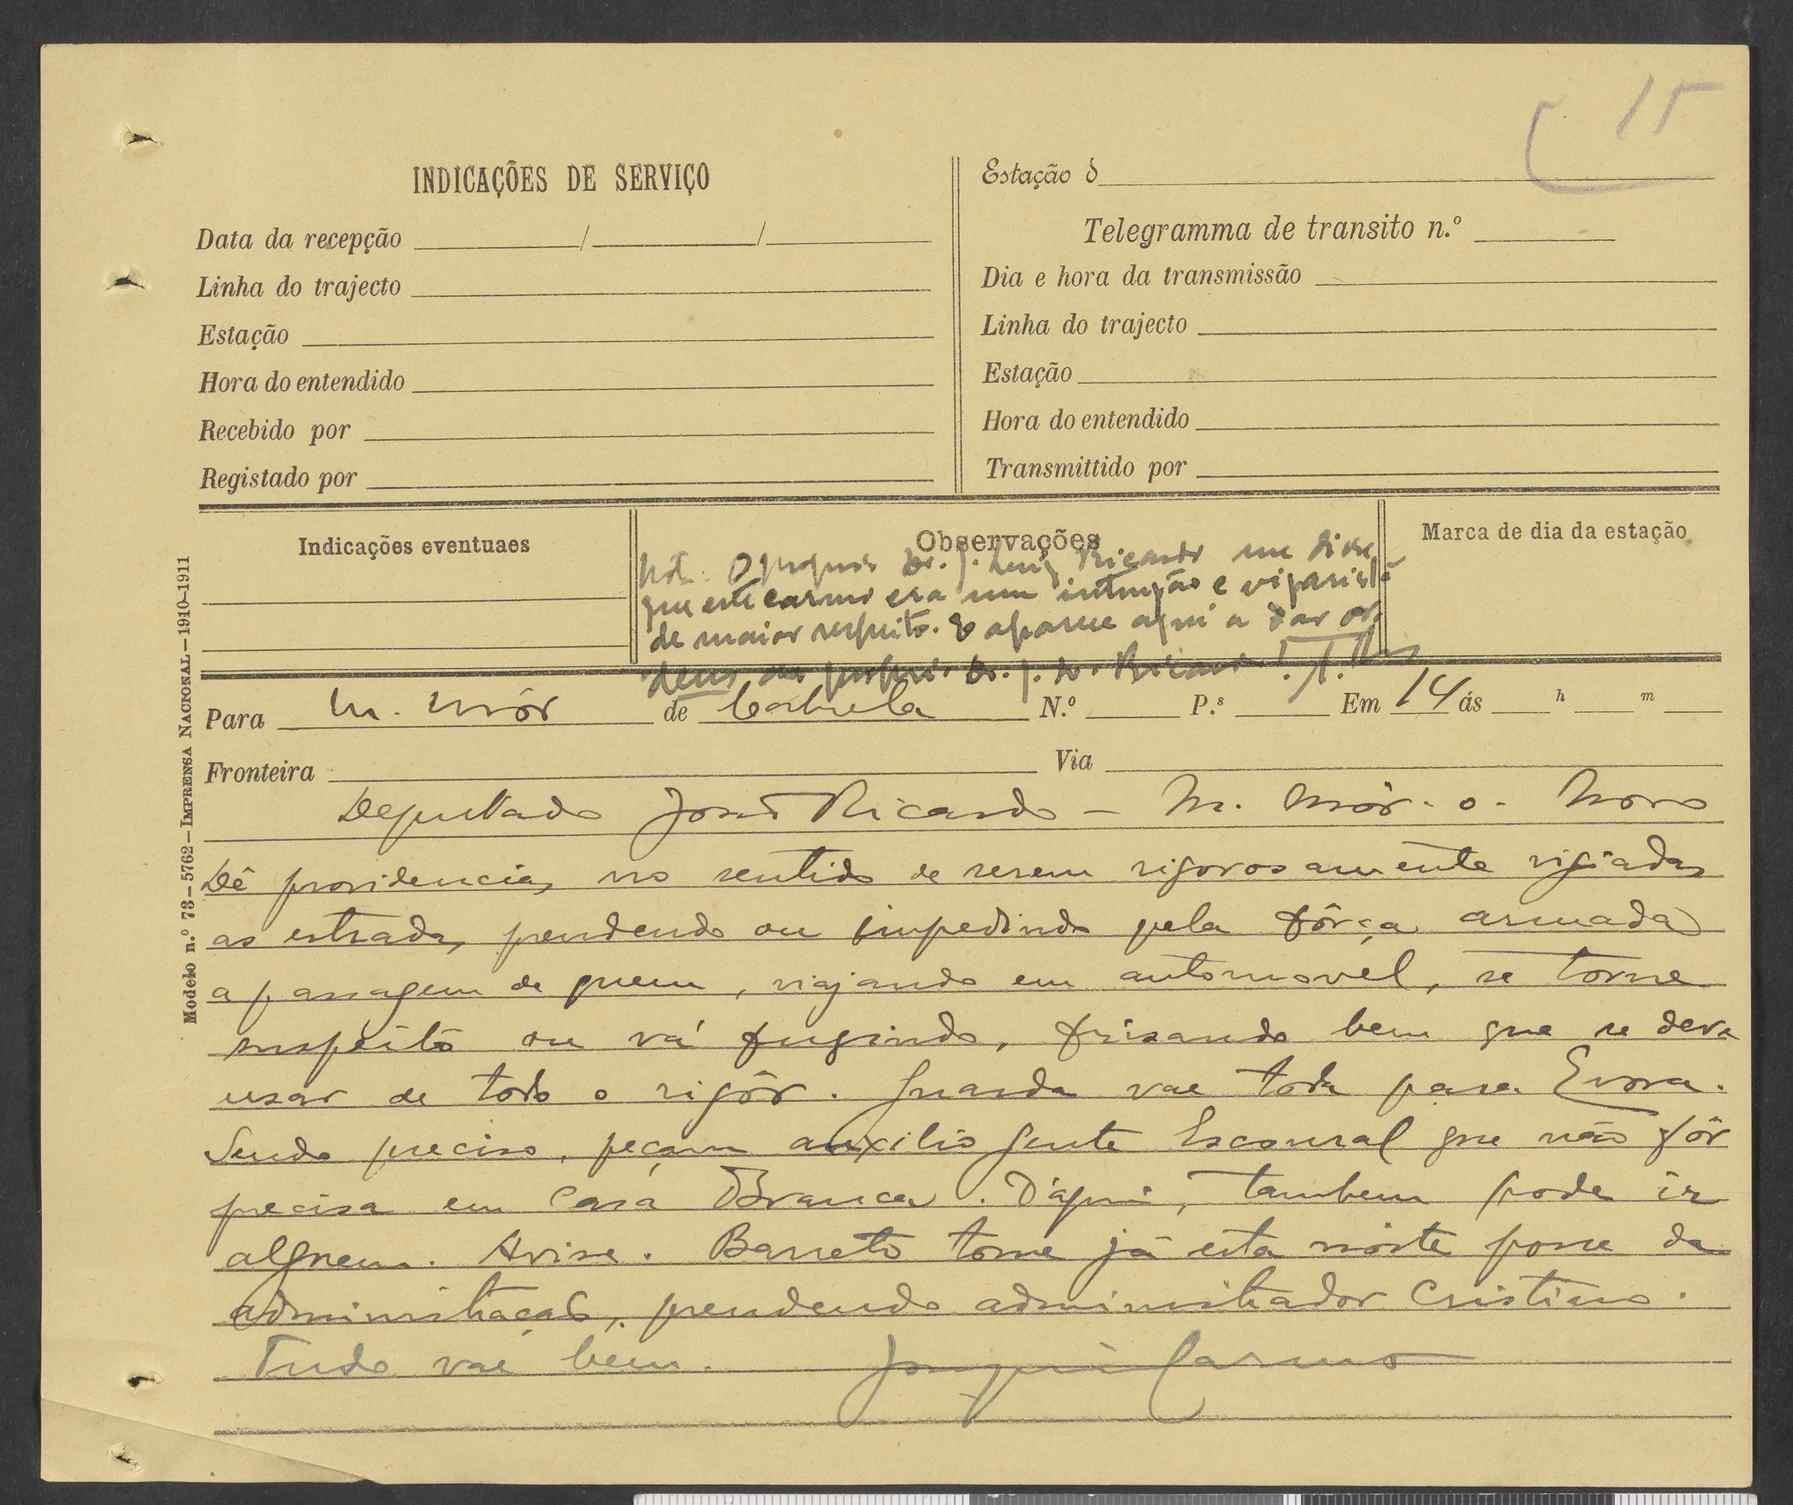 15
INDICAÇÕES DE SERVIÇO
Data da recepção / /
Linha do trajecto
Estação
Hora do entendido
Recebido por
Registado por
Estação d
Telegramma de transito n.º
Dia e hora da transmissão
Linha do trajecto
Estação
Hora do entendido
Transmittido por
Indicações eventuaes
Observações
Marca de dia da estação
O proprio Dr. J. Luiz Ricardo me disse
que este carmo era um intrujão e vigarista
de maior respeito. E aparece aqui a dar or-
dens ao proprio Dr. J. L. Ricardo!
Para M. Mór de Cabrela N.º P.s Em 14 ás h m
Fronteira Via
Modelo n.º 73—5762—IMPRENSA NACIONAL—1910-1911
Deputado José Ricardo — M. Mór. o. Novo
Dê providencias no sentido de serem rigorosamente vigiadas
as estradas, prendendo ou impedindo pela fôrça armada
a passagem de quem, viajando em automovel, se torne
suspeito ou vá fugindo, frisando bem que se deve
usar de todo o rigôr. Guarda vae toda para Evora.
Sendo preciso, peçam auxilio gente Escoural que não fôr
precisa em Casa Branca. D'aqui, tambem pode ir
alguem. Avise. Barreto tome já esta noite posse da
administração, prendendo administrador Cristino.
Tudo vae bem. Joaquim Carmo